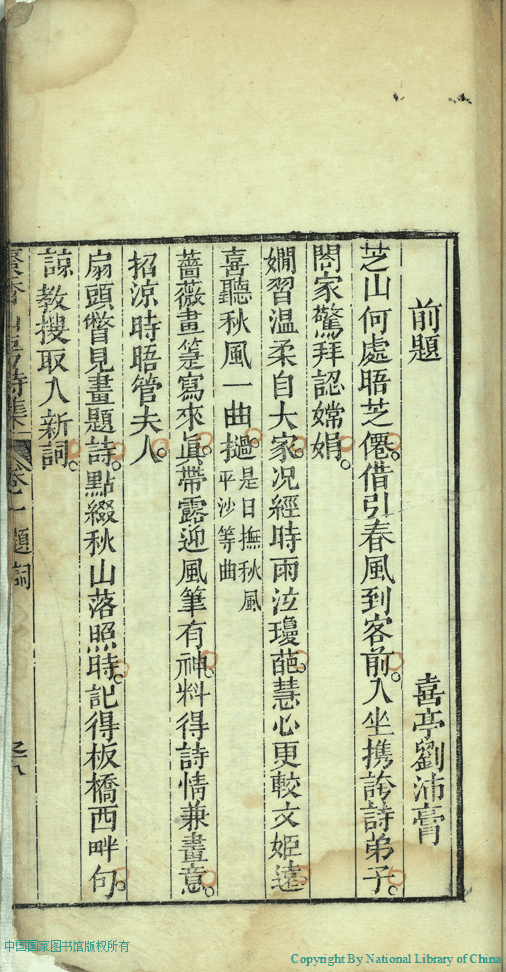 前題
喜亭劉沛膏
芝山何處晤芝僊。借引春風到客前。入坐携誇詩弟子。
閤家驚拜認嫦娟。
嫻習溫柔自大家。况經時雨泣瓊葩。慧心更較文姬遠。
喜聽秋風一曲撾。是日撫秋風
平沙等曲
薔薇畫箑寫來眞。帶露迎風筆有神。料得詩情兼畫意。
招涼時晤管夫人。
扇頭瞥見畫題詩。點綴秋山落照時。記得板橋西畔句。
諒教搜取入新詞。
山房詩集 卷一 題詞
中国国家图书馆版权所有
Copyright By National Library of China